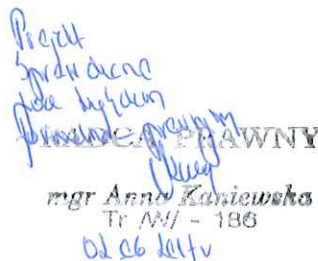 Projekt
Sprawdzono
pod względem
formalno - prawnym
RADCA PRAWNY
mgr Anna Kaniewska
Tr /W/ - 186